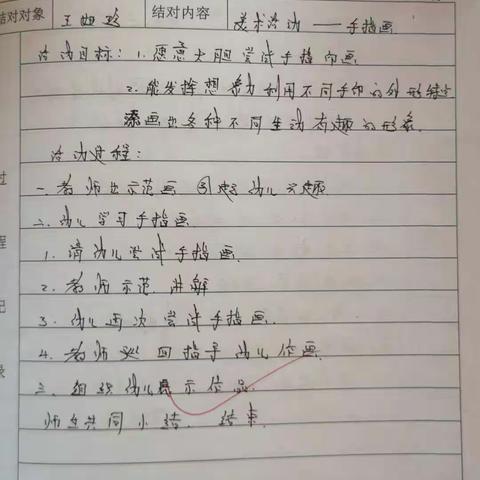 结对对象 王如玲 结对内容 美术活动——手指画
活动目标：1. 愿意大胆尝试手指印画
2. 能发挥想象力利用不同手印的外形特点
添画出各种不同生动有趣的形象.
活动过程：
一. 教师出示范画 引起幼儿兴趣
二. 幼儿学习手指画
1. 请幼儿尝试手指画.
2. 教师示范. 讲解
3. 幼儿再次尝试手指画.
4. 教师巡回指导幼儿作画.
三. 组织幼儿展示作品.
师生共同小结. 结束.
过
程
记
录